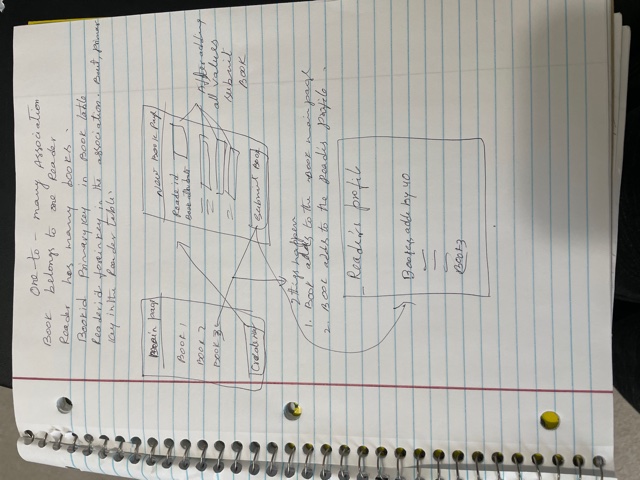 One-to-many Association
Book belongs to one Reader
Reader has many books.
Bookid Primary key in Book table
Readerid foreinkey in the association. But, primar
key in the Reader table.
main page
New Book Page
Book 1
Reade id
Book attributes
Book 2
Book 3
After adding
all values
submit
Book
Create
Submit Book
2 things happen
1. Book adds to the Book main page
2. Book adds to the Readis Profile.
Reader's profile
Books adds by
Book3